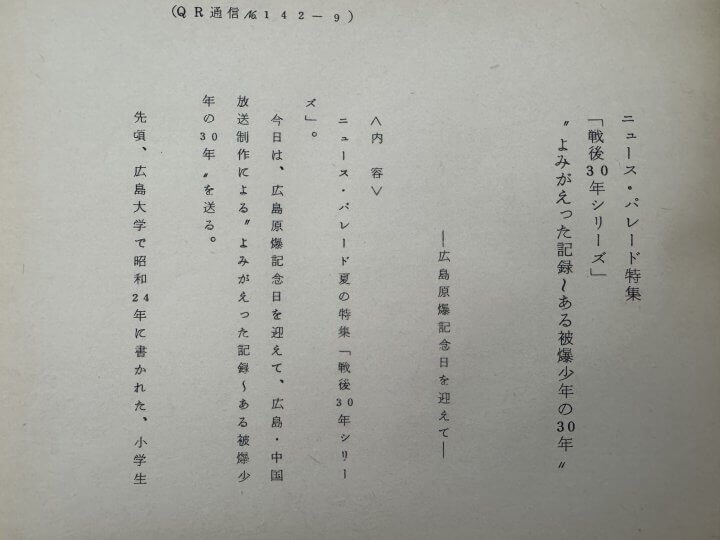 (QR通信№142-9)
ニュース・パレード特集
「戦後30年シリーズ」
〃よみがえった記録〜ある被爆少年の30年〃
―広島原爆記念日を迎えて―
<内 容>
ニュース・パレード夏の特集「戦後30年シリー
ズ」。
今日は、広島原爆記念日を迎えて、広島・中国
放送制作による〃よみがえった記録〜ある被爆少
年の30年〃を送る。
先頃、広島大学で昭和24年に書かれた、小学生